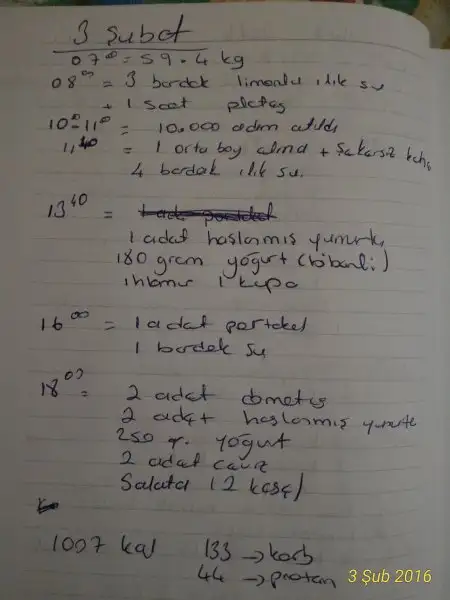 3 Şubat
07⁰⁰ = 59.4 kg
08⁰⁰ = 3 bardak limonlu ılık su
+ 1 saat plates
10⁰⁰-11⁰⁰ = 10.000 adım atıldı
11,40 = 1 orta boy elma + Şekersiz kahve
4 bardak ılık su.
13⁴⁰ = 1 adet portakal
1 adet haşlanmış yumurta
180 gram yoğurt (biberli)
ıhlamur 1 kupa
16⁰⁰ = 1 adet portakal
1 bardak su
18⁰⁰ = 2 adet domates
2 adet haşlanmış yumurta
250 gr. yoğurt
2 adet ceviz
Salata (2 kaşç)
1007 kal 133 → karb
44 → protein
3 Şub 2016